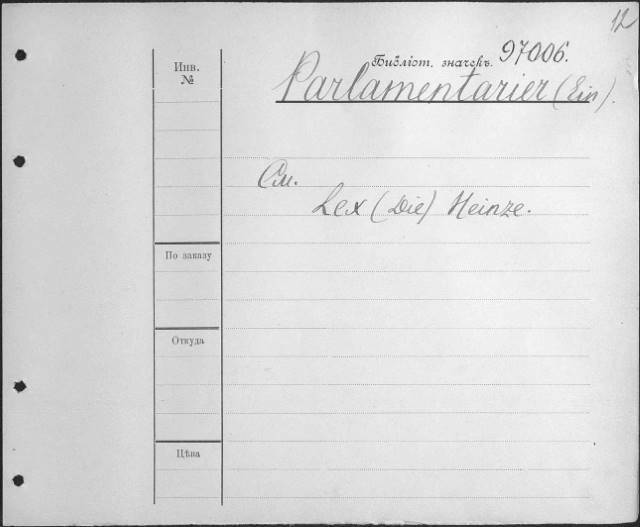 12
Библіот. значекъ. 97006.
Parlamentarier (Ein).
Инв.
№
См.
Lex (Die) Heinze.
По заказу
Откуда
Цѣна